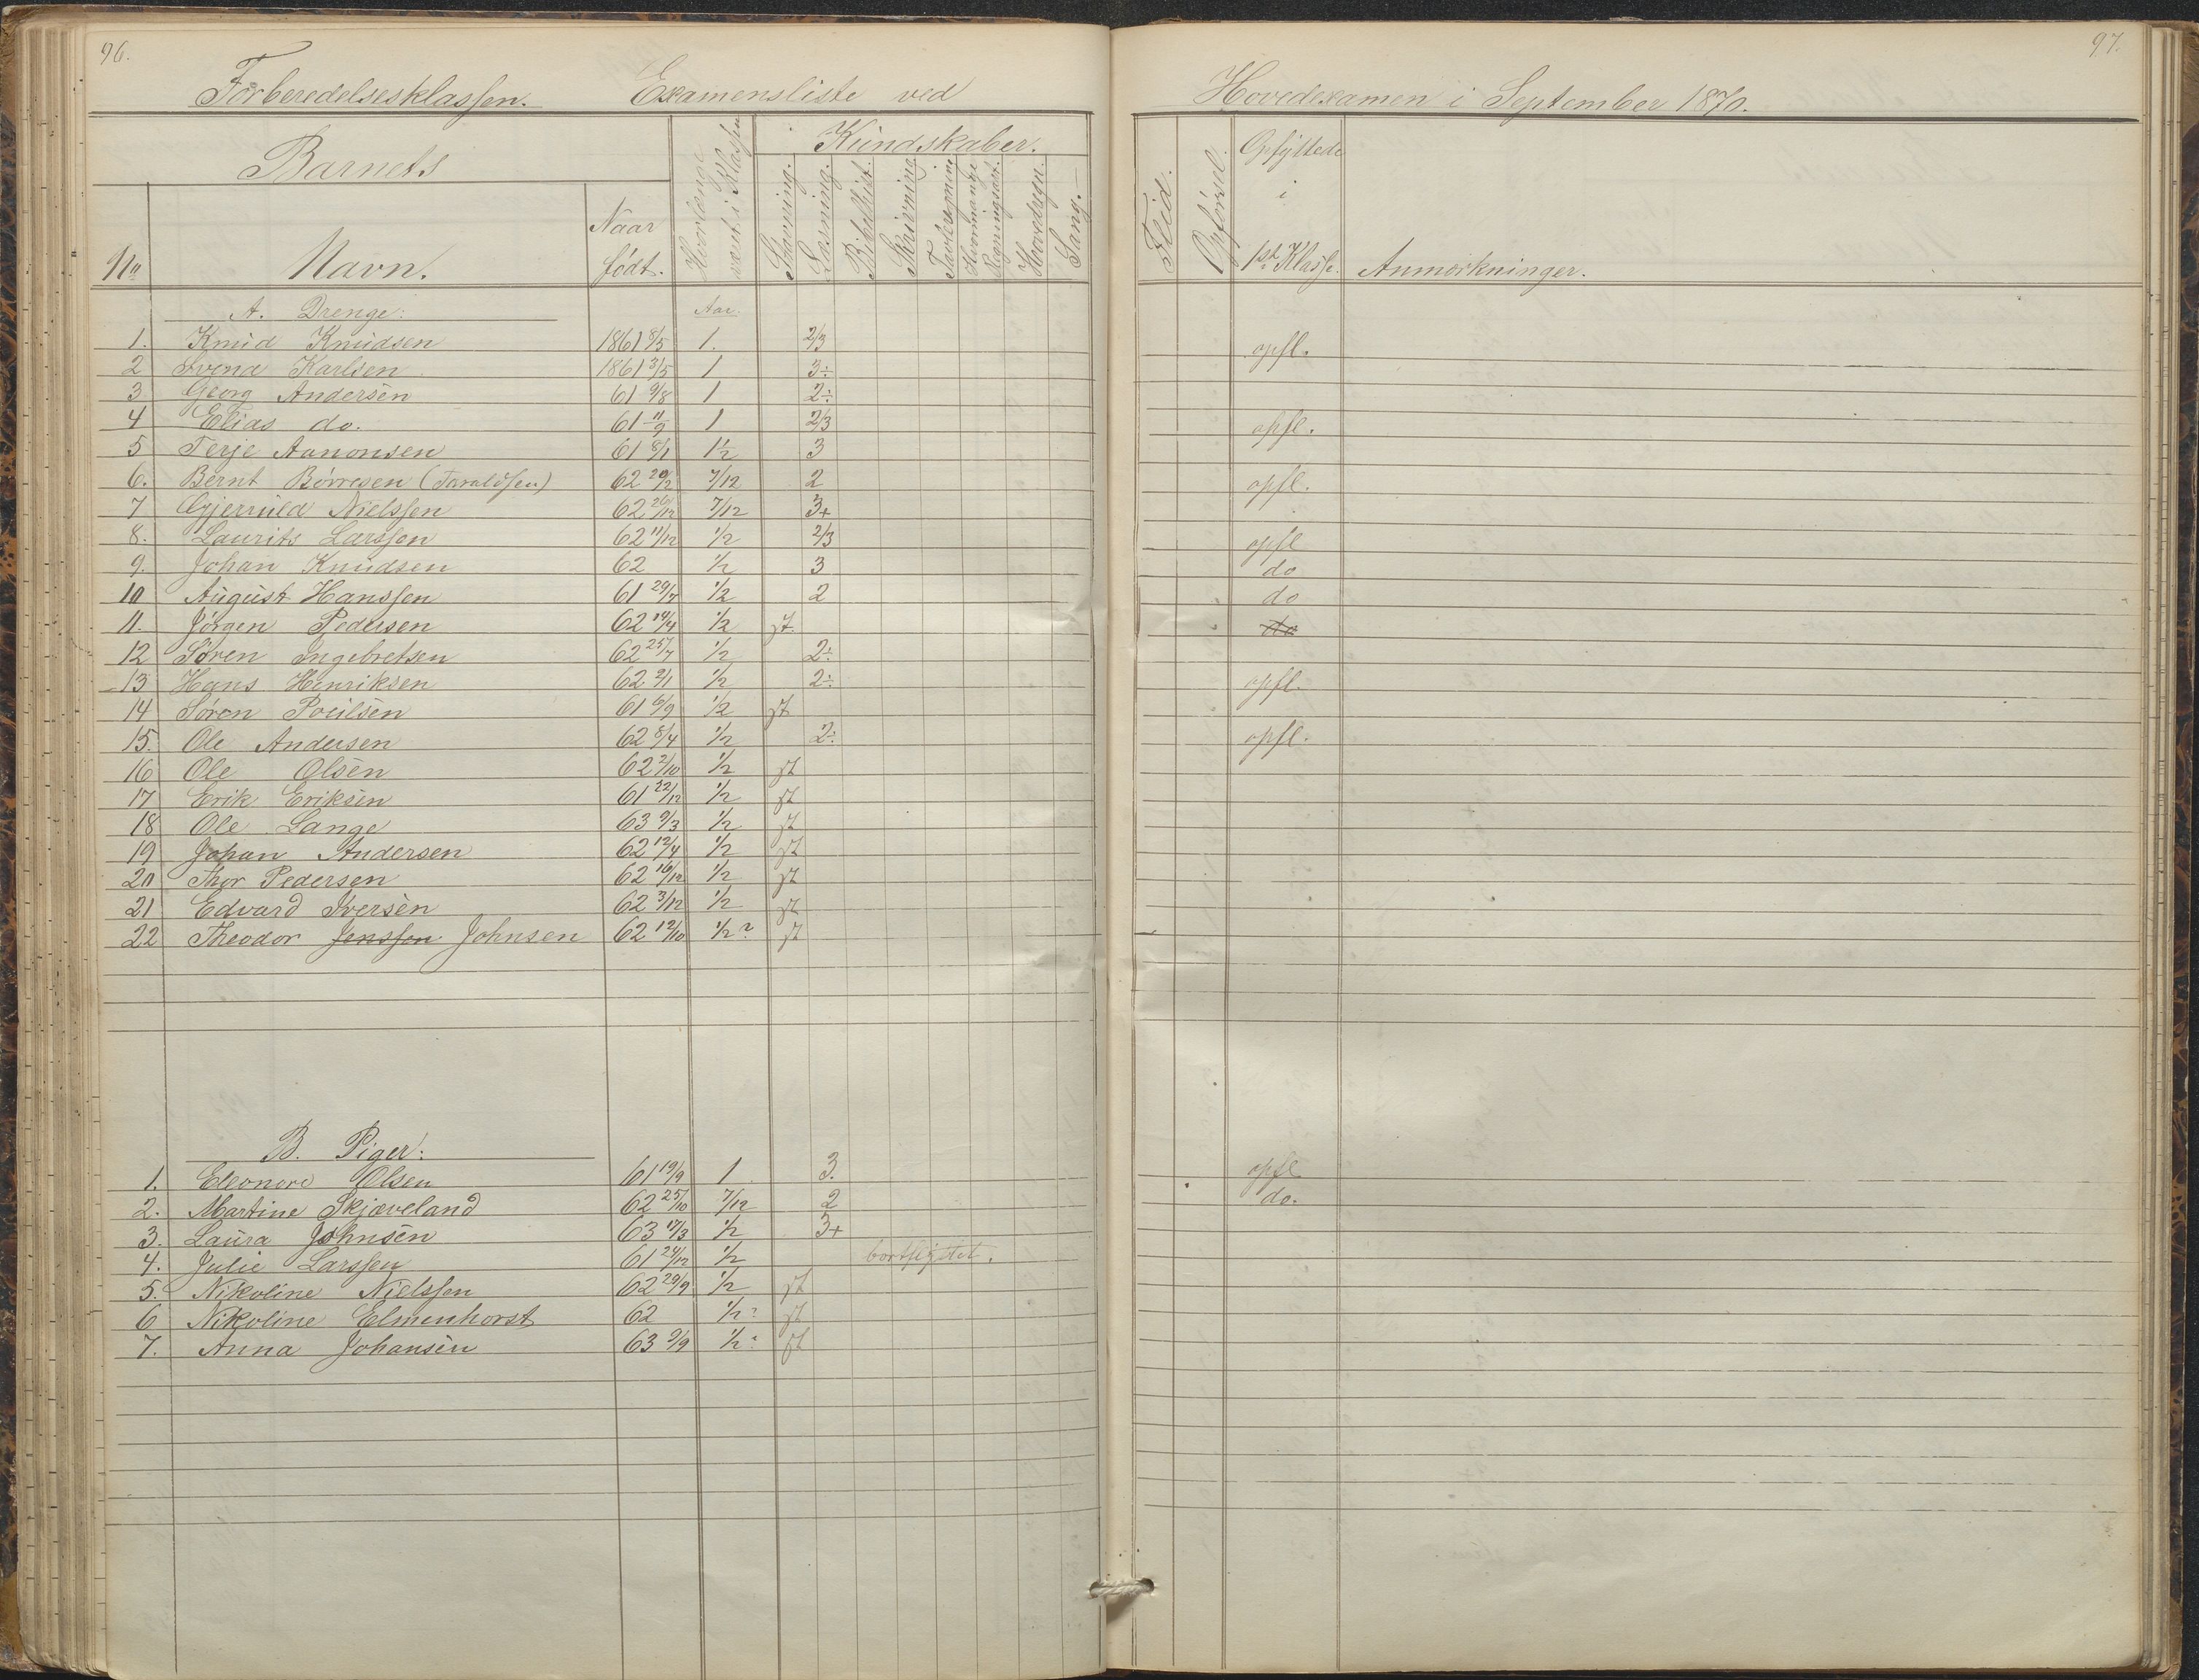 96.
Forberedelsesklassen. Examensliste ved
Barnets
No Navn. Naar født. Hvorlænge været i Klassen Kundskaber. Stavning. Læsning. Bibelhist. Skrivning Tavleregning Hvormange Regningsart. Hovedregn. Sang.
A. Drenge: Aar.
1. Knud Knudsen 1861 8/5 1. 2/3
2 Svend Karlsen 1861 3/5 1 3÷
3 Georg Andersen 61 9/8 1 2÷
4 Elias do. 61 11/9 1 2/3
5 Terje Aanonsen 61 8/1 1½ 3
6. Bernt Børresen (Taraldsen) 62 20/2 7/12 2
7 Gjerruld Nielssen 62 26/12 7/12 3+
8. Laurits Larssen 62 11/12 1/2 2/3
9. Johan Knudsen 62 1/2 3
10 August Hanssen 61 29/7 1/2 2
11. Jörgen Pedersen 62 14/4 1/2 st.
12 Sören Ingebretsen 62 25/7 1/2 2÷
13 Hans Henriksen 62 2/1 1/2 2÷
14 Søren Poulsen 61 6/9 1/2 st
15. Ole Andersen 62 8/4 1/2 2÷
16 Ole Olsen 62 2/10 1/2 st
17 Erik Eriksen 61 22/12 1/2 st
18 Ole Lange 63 9/3 1/2 st
19 Johan Andersen 62 12/4 1/2 st
20 Thor Pedersen 62 16/12 1/2 st
21 Edvard Iversen 62 3/12 1/2 st
22 Theodor Jenssen Johnsen 62 12/10 1/2? st
B. Piger:
1. Eleonore Olsen 61 19/9 1 3.
2. Martine Skjæveland 62 25/10 7/12 2
3. Laura Johnsen 63 17/3 1/2 3+
4. Julie Larssen 61 24/12 1/2 bortflyttet.
5. Nikoline Nielssen 62 29/9 1/2 st
6 Nikoline Elmenhorst 62 1/2? st
7. Anna Johansen 63 9/9 1/2? st
97.
Hovedexamen i September 1870.
Flid. Opførsel. Opflyttede i 1ste Klasse. Anmærkninger.
opfl.
opfl.
opfl.
opfl
do
do
do
opfl.
opfl.
opfl
do.